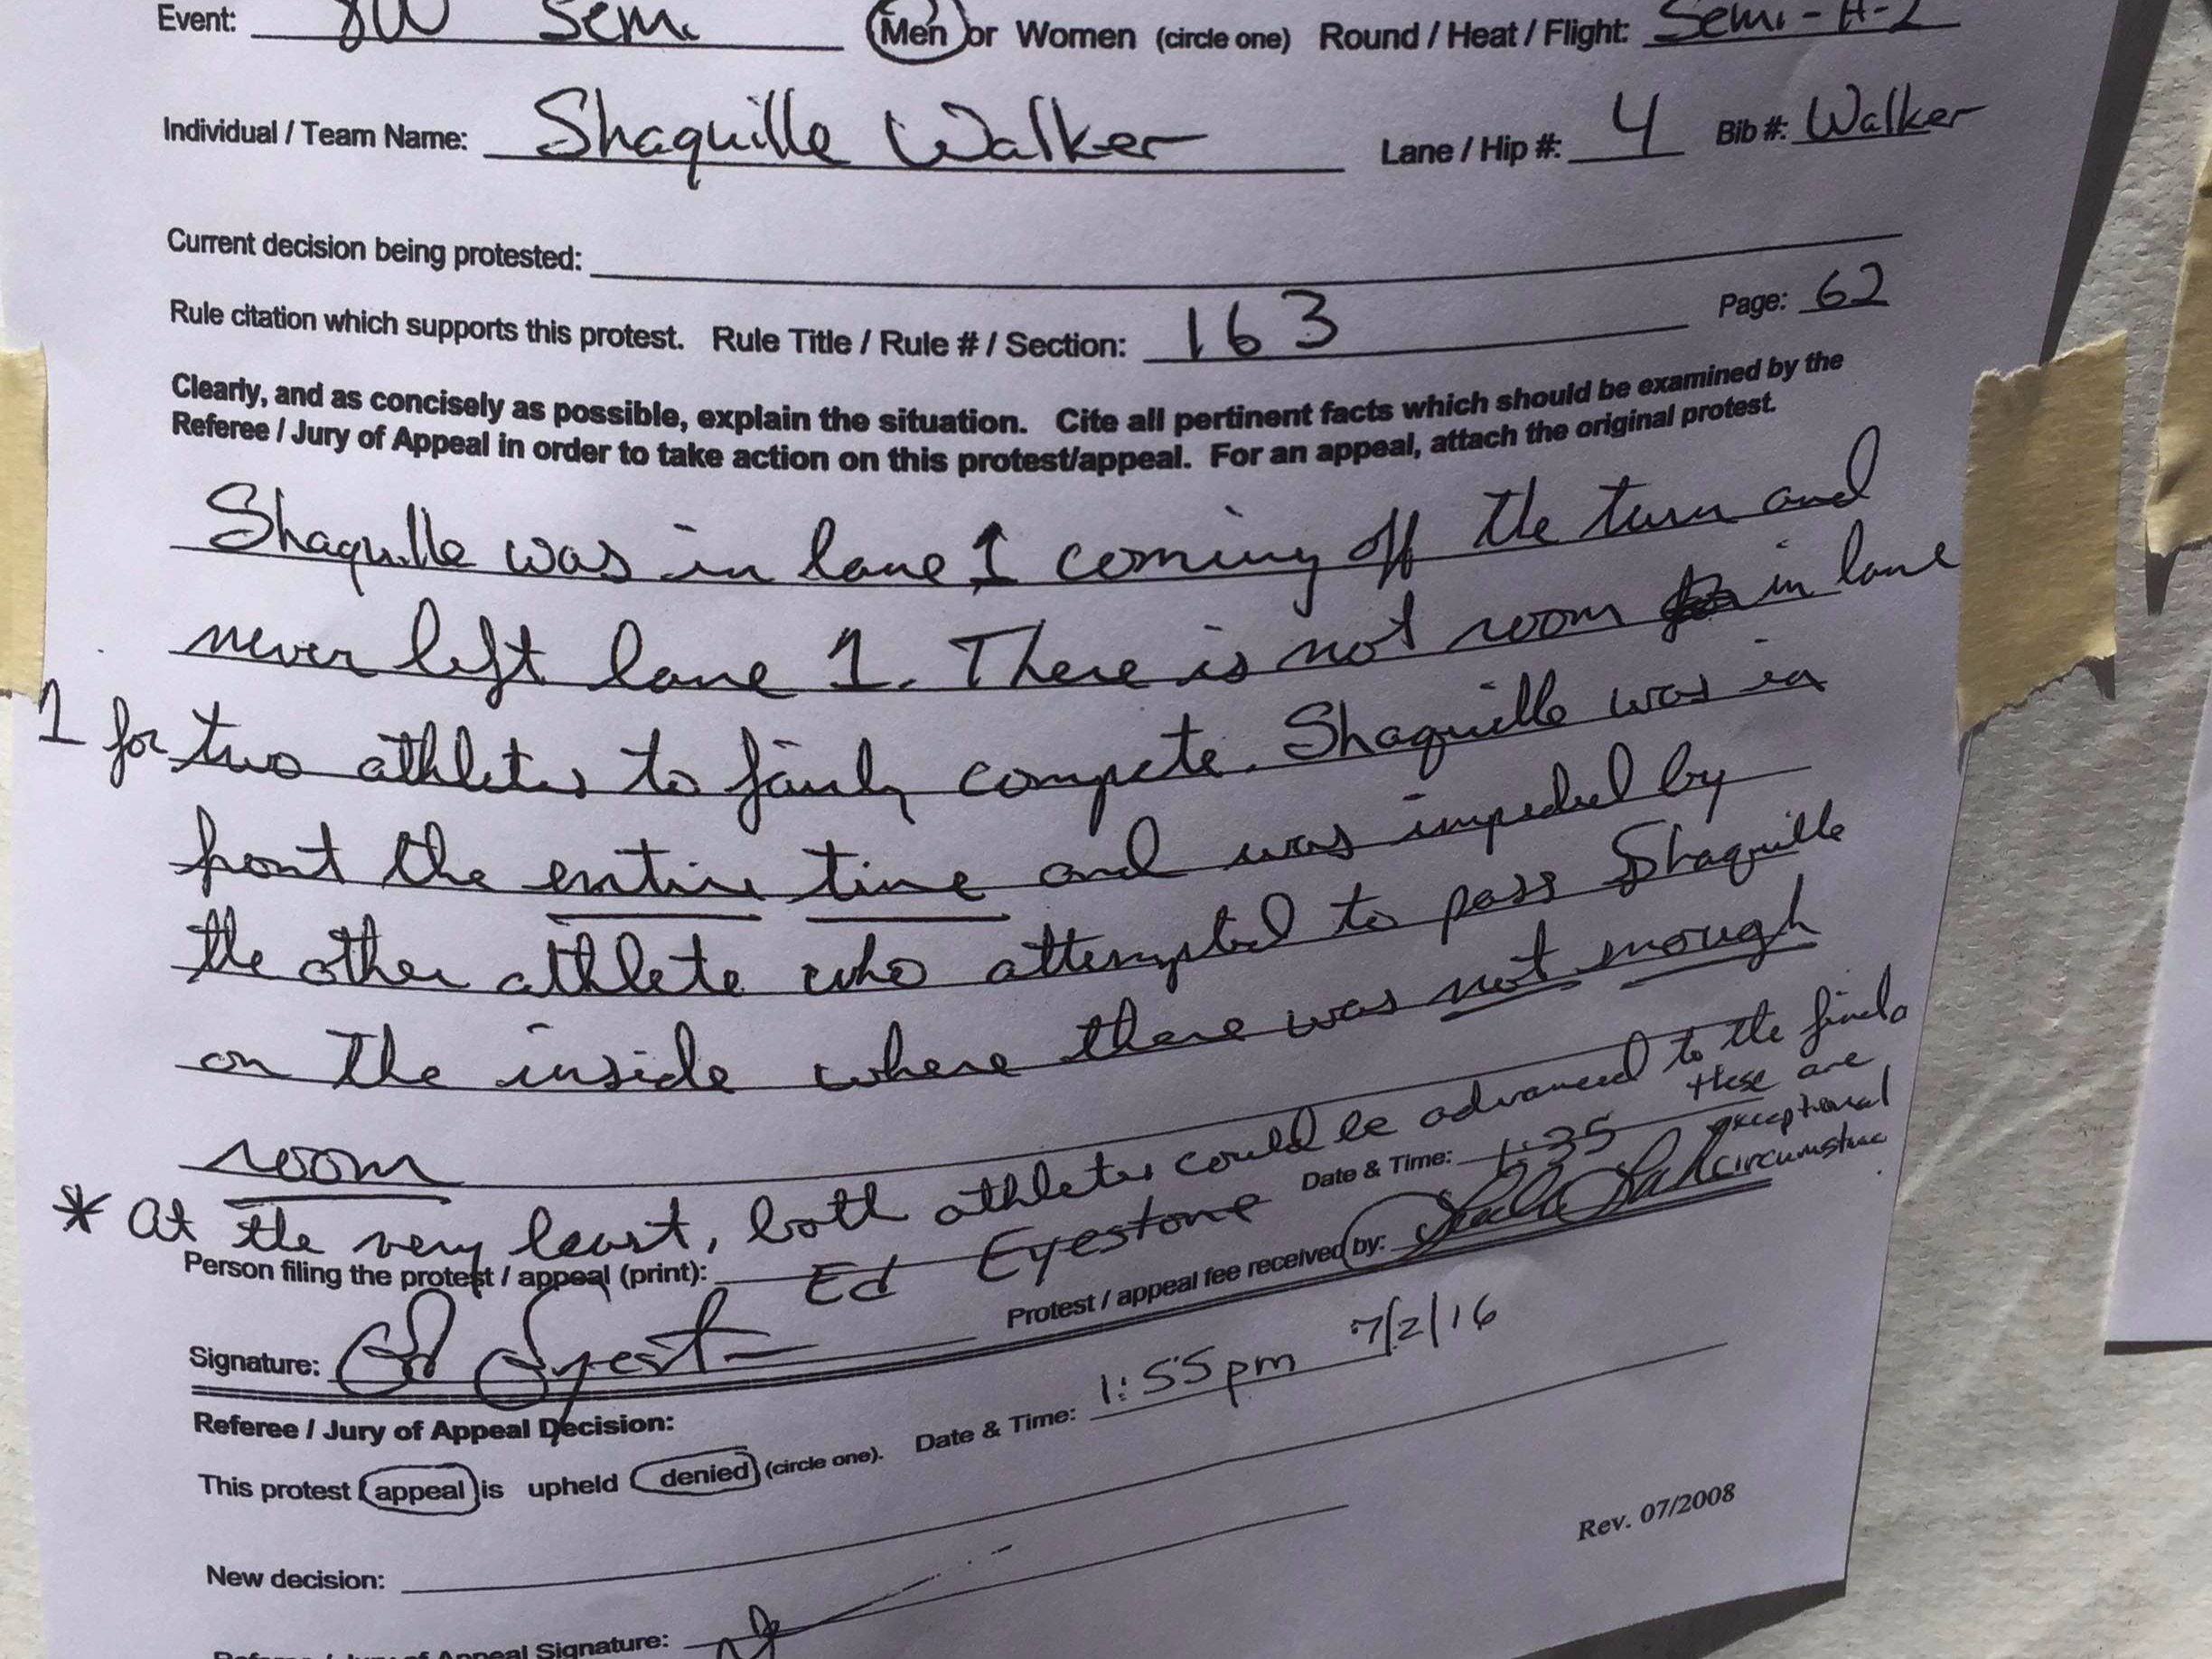 Event: 800 Semi Men or Women (circle one) Round / Heat / Flight: Semi - H-2
Individual / Team Name: Shaquille Walker Lane / Hip #: 4 Bib #: Walker
Current decision being protested:
Rule citation which supports this protest. Rule Title / Rule # / Section: 163 Page: 62
Clearly, and as concisely as possible, explain the situation. Cite all pertinent facts which should be examined by the
Referee / Jury of Appeal in order to take action on this protest/appeal. For an appeal, attach the original protest.
Shaquille was in lane 1 coming off the turn and
never left lane 1. There is not room in lane
1 for two athletes to fairly compete. Shaquille was in
front the entire time and was impeded by
the other athlete who attempted to pass Shaquille
on the inside where there was not enough
room
* At the very least, both athletes could be advanced to the finals
these are
exceptional
circumstance
Date & Time: 1:35
Person filing the protest / appeal (print): Ed Eyestone
Protest / appeal fee received by:
Signature: Ed Eyestone
Referee / Jury of Appeal Decision: Date & Time: 1:55pm 7/2/16
This protest appeal is upheld denied (circle one).
New decision:
Rev. 07/2008
Appeal Signature: